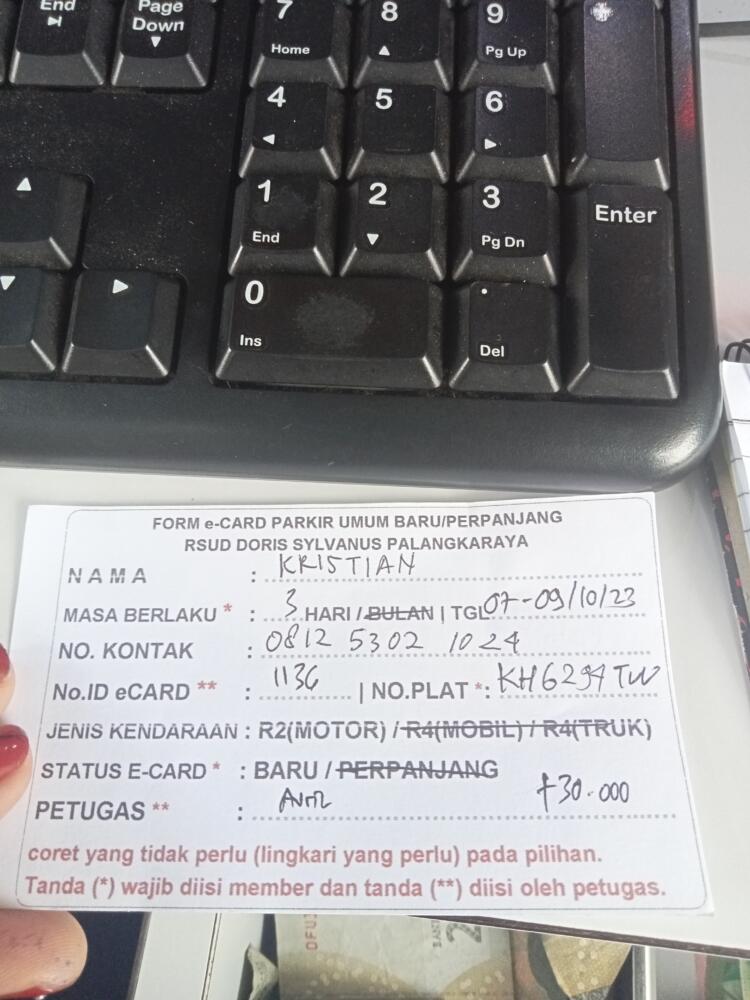 End
Page
Down
7
Home
8
9
Pg Up
4
5
6
1
End
2
3
Pg Dn
Enter
0
Ins
.
Del
FORM e-CARD PARKIR UMUM BARU/PERPANJANG
RSUD DORIS SYLVANUS PALANGKARAYA
NAMA : KRISTIAN
MASA BERLAKU * : 3 HARI / BULAN | TGL 07-09/10/23
NO. KONTAK : 0812 5302 1024
No.ID eCARD ** : 1136 | NO.PLAT *: KH6294TW
JENIS KENDARAAN : R2(MOTOR) / R4(MOBIL) / R4(TRUK)
STATUS E-CARD * : BARU / PERPANJANG
PETUGAS ** : +30.000
coret yang tidak perlu (lingkari yang perlu) pada pilihan.
Tanda (*) wajib diisi member dan tanda (**) diisi oleh petugas.